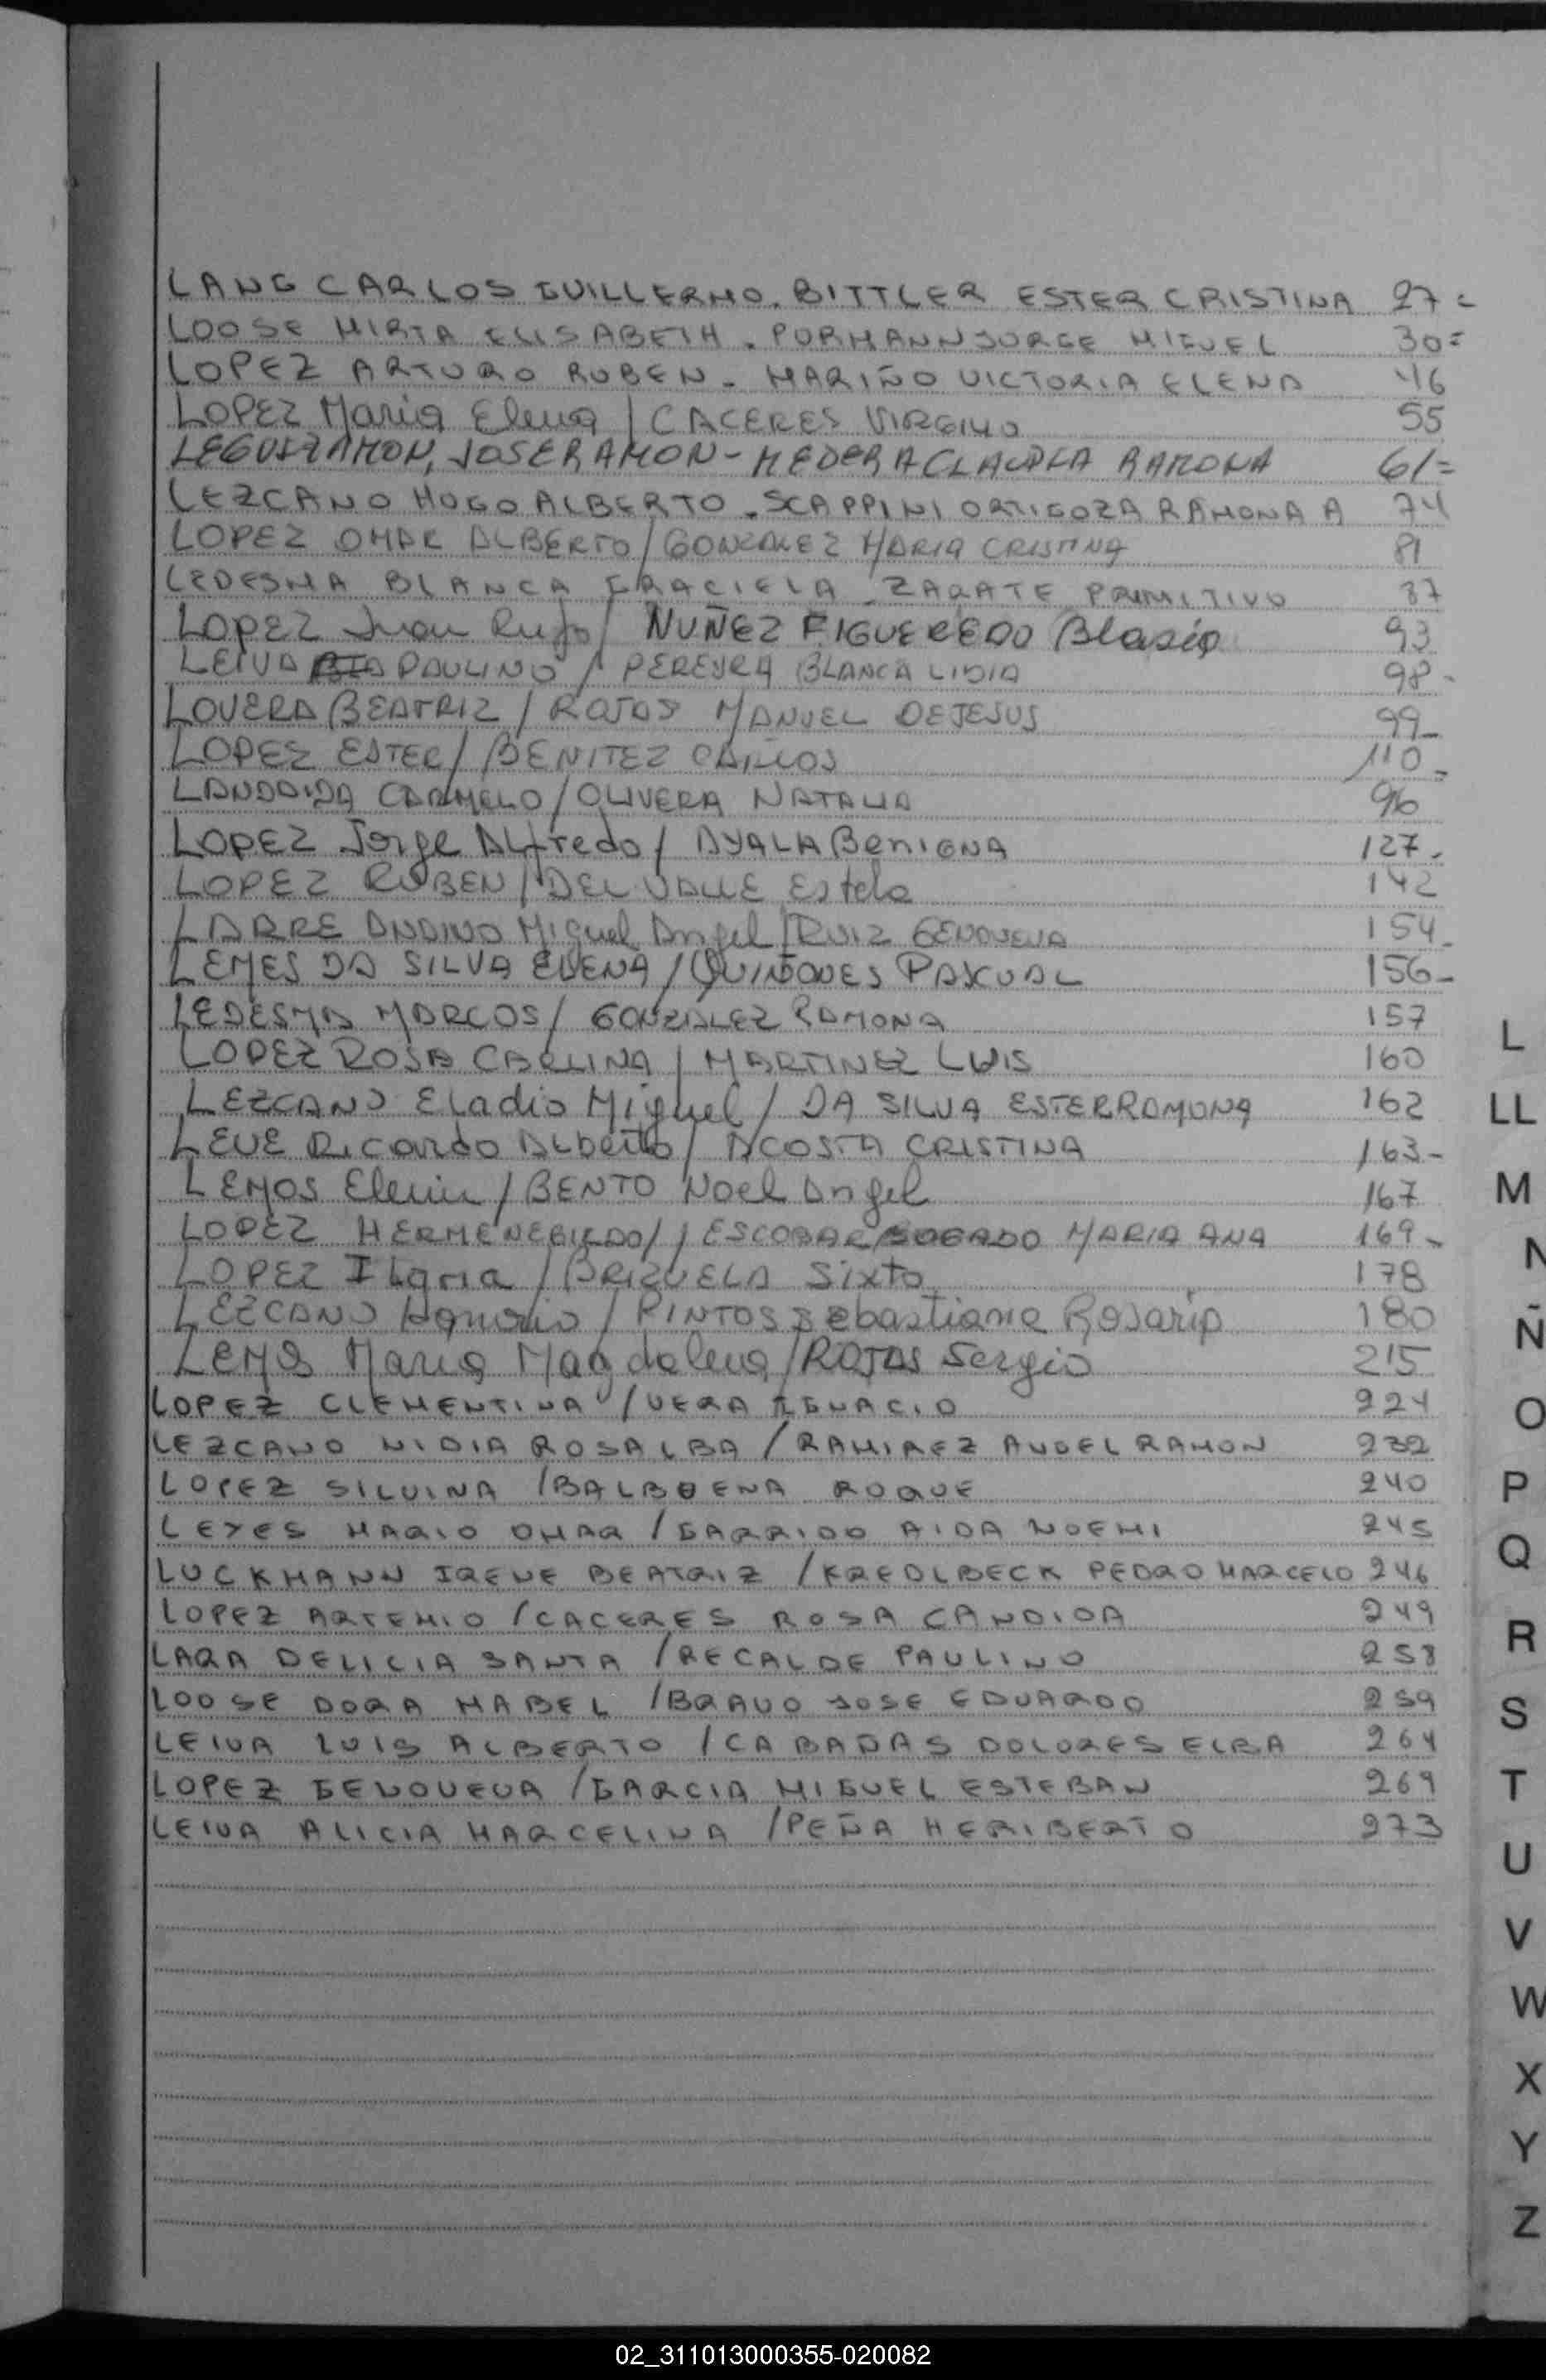 LANG CARLOS GUILLERMO. BITTLER ESTER CRISTINA 27=
LOOSE MIRTA ELISABETH. PORMANN JORGE MIGUEL 30=
LOPEZ ARTURO RUBEN - MARIÑO VICTORIA ELENA 46
LOPEZ Maria Elena / CACERES VIRGINIO 55
LEGUIZAMON, JOSE RAMON - MEDERA CLAUDIA RAMONA 61=
LEZCANO HUGO ALBERTO - SCAPPINI ORTIGOZA RAMONA A 74
LOPEZ OMAR ALBERTO / GONZALEZ MARIA CRISTINA 81
LEDESMA BLANCA GRACIELA - ZARATE PRIMITIVO 87
LOPEZ Juan Rufo / NUÑEZ FIGUEREDO Blasia 93
LEIVA PAULINO / PEREYRA BLANCA LIDIA 98-
LOVERA BEATRIZ / ROJAS MANUEL DE JESUS 99-
LOPEZ ESTER / BENITEZ CARLOS 110=
LANDAIDA CARMELO / OLIVERA NATALIA 96
LOPEZ Jorge Alfredo / AYALA Benigna 127-
LOPEZ RUBEN / DEL VALLE Estela 142
LABRE ANDINO Miguel Angel / RUIZ GENOVEVA 154-
LEMES DA SILVA ELENA / QUIÑONES PASCUAL 156-
LEDESMA MARCOS / GONZALEZ RAMONA 157
LOPEZ ROSA CARLINA / MARTINEZ LUIS 160
LEZCANO Eladio Miguel / DA SILVA ESTER RAMONA 162
LEVE Ricardo Alberto / ACOSTA CRISTINA 163-
LEMOS Elenir / BENTO Noel Angel 167
LOPEZ HERMENEGILDO / ESCOBAR BOGADO MARIA ANA 169-
LOPEZ Ilaria / BRIZUELA Sixto 178
LEZCANO Honorio / PINTOS Sebastiana Rosario 180
LEMOS Maria Magdalena / ROJAS Sergio 215
LOPEZ CLEMENTINA / VERA IGNACIO 224
LEZCANO NIDIA ROSALBA / RAMIREZ ANGEL RAMON 232
LOPEZ SILVINA / BALBUENA ROQUE 240
LEYES MARIO OMAR / GARRIDO AIDA NOEMI 245
LUCKMANN IRENE BEATRIZ / KREOLBECK PEDRO MARCELO 246
LOPEZ ARTEMIO / CACERES ROSA CANDIDA 249
LARA DELICIA SANTA / RECALDE PAULINO 258
LOOSE DORA MABEL / BRAVO JOSE EDUARDO 259
LEIVA LUIS ALBERTO / CABADAS DOLORES ELBA 264
LOPEZ GENOVEVA / GARCIA MIGUEL ESTEBAN 269
LEIVA ALICIA MARCELINA / PEÑA HERIBERTO 273
L
LL
M
N
Ñ
O
P
Q
R
S
T
U
V
W
X
Y
Z
02_311013000355-020082